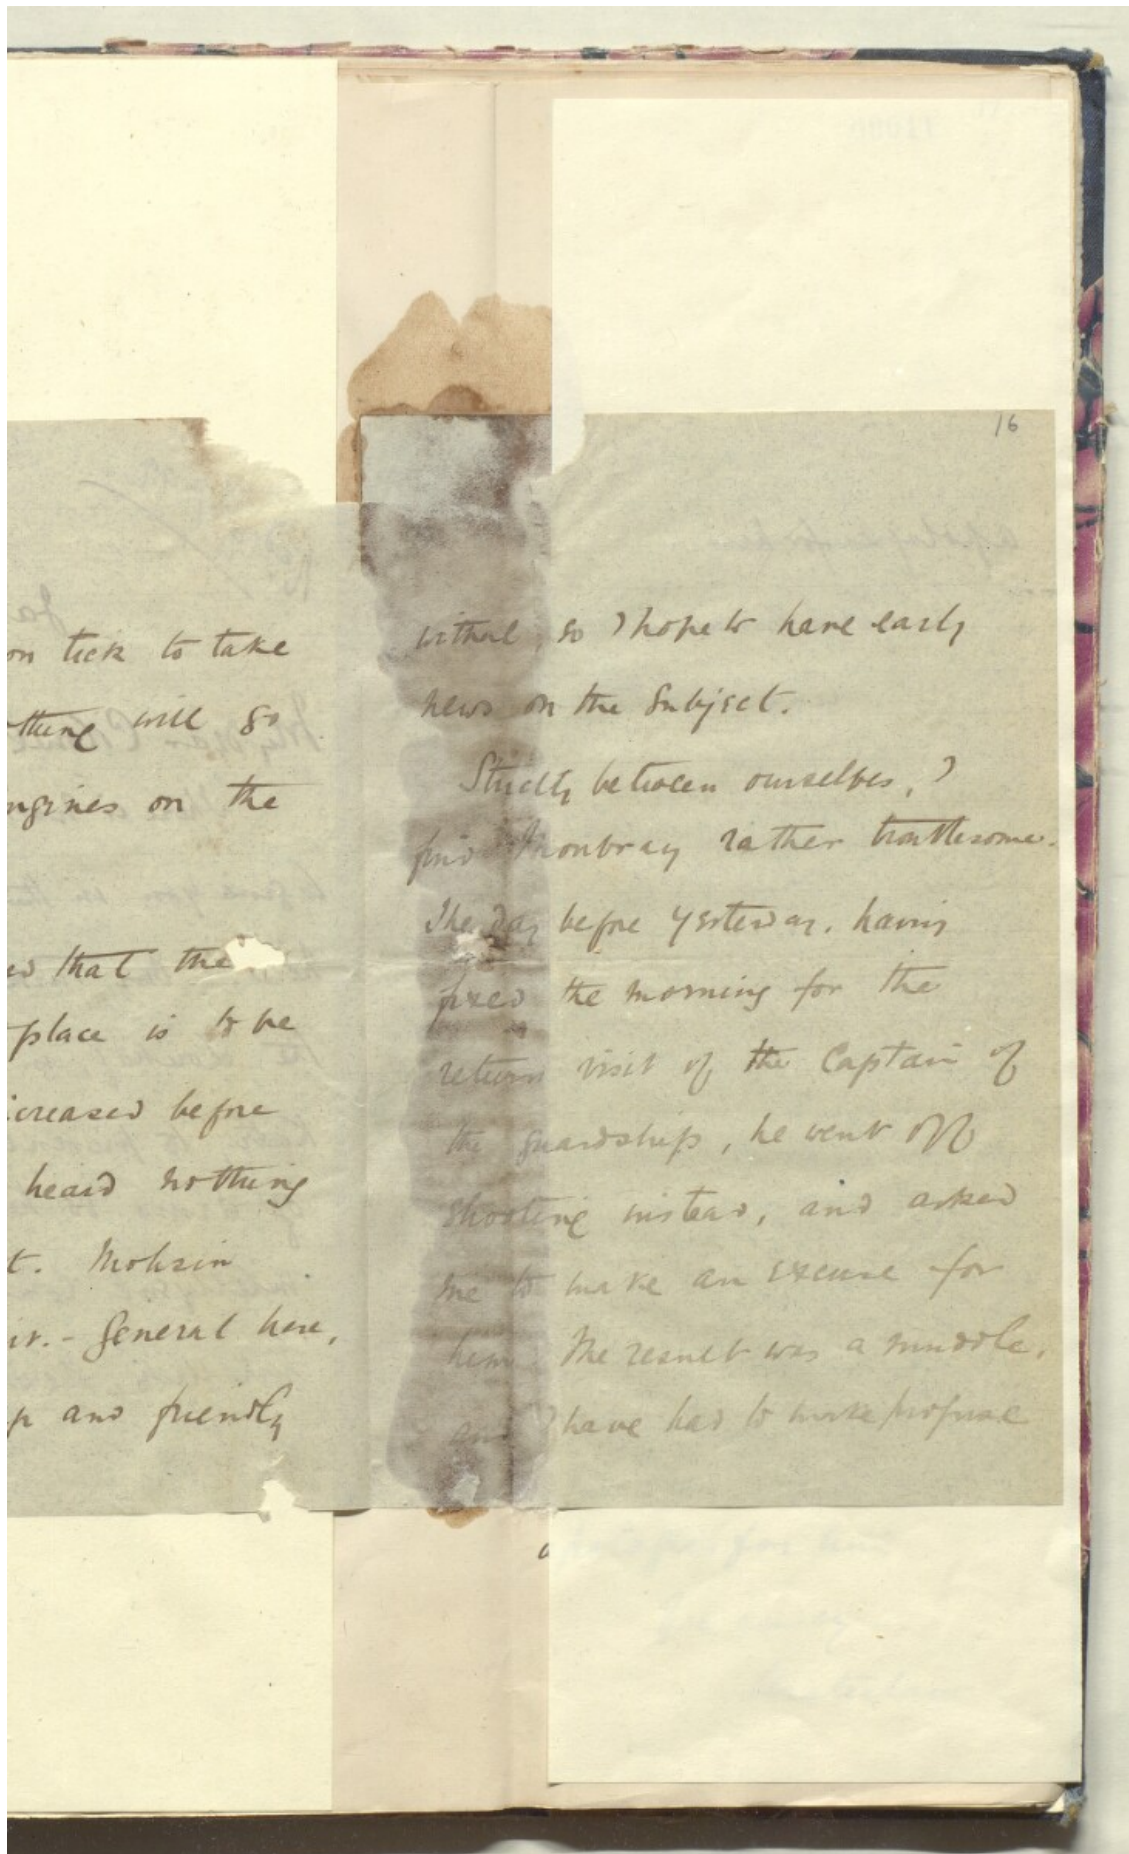 on tick to take
thing will go
ngines on the
that the
place is to be
creased before
heard nothing
t. Mohsin
ir. - General here,
p and friendly
16
withal, so I hope to have early
news on the subject.
Strictly between ourselves, I
find Monbray rather troublesome.
The day before yesterday, having
fixed the morning for the
return visit of the Captain of
the guardship, he went off
shooting instead, and asked
me to make an excuse for
him. The result was a muddle,
and I have had to make profuse